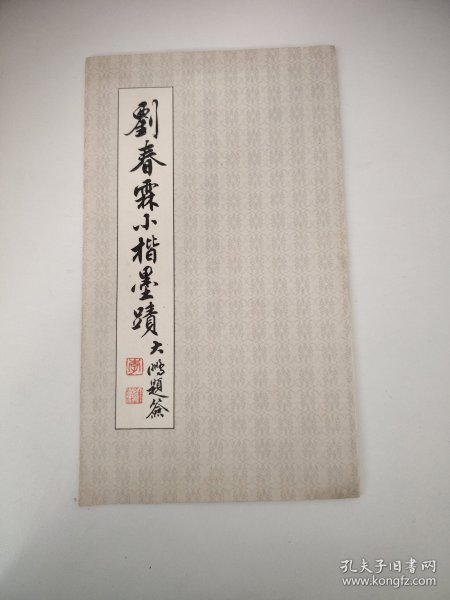 劉春霖小楷墨蹟
大鵬題簽
孔夫子旧书网
www.kongfz.com